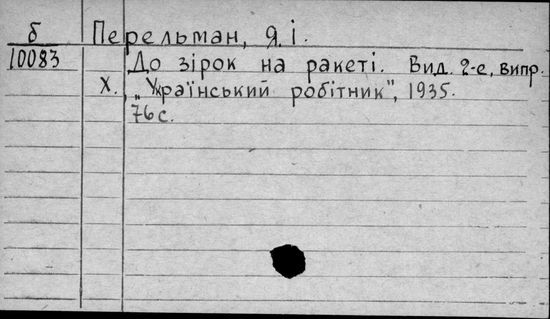 б Перельман, Я. І.
10083 До зірок на ракеті. Вид. 2-е, випр.
Х., „Український робітник", 1935.
76 с.